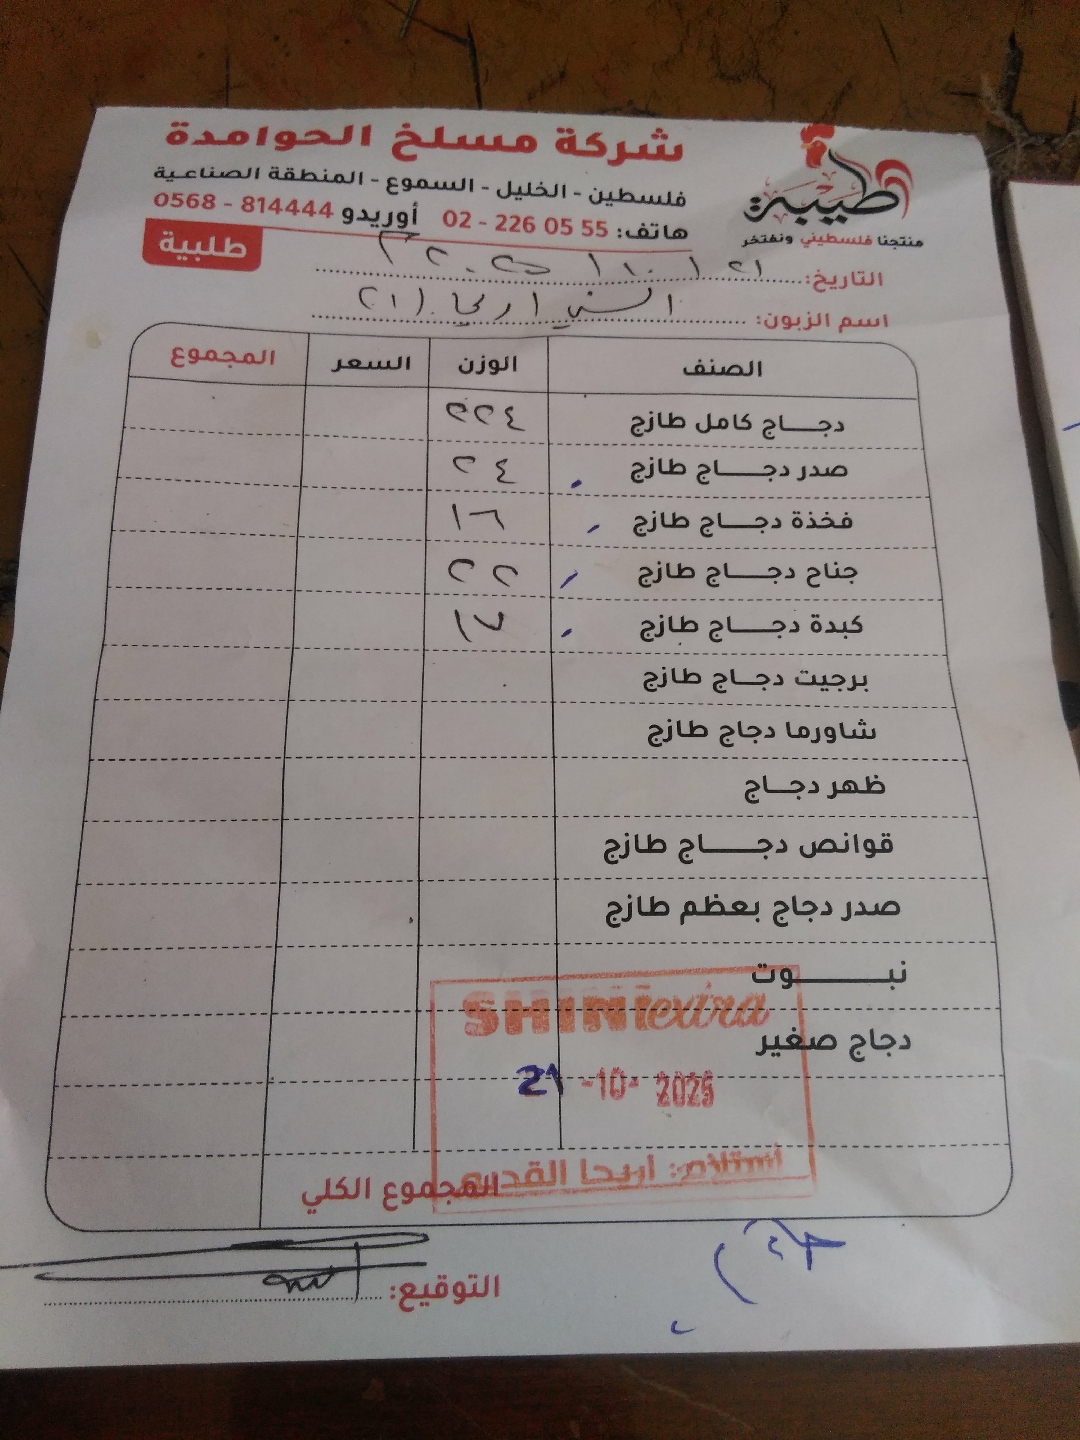 شركة مسلخ الحوامدة
طيبة
فلسطين - الخليل - السموع - المنطقة الصناعية
هاتف: 55 05 226 - 02 أوريدو 814444 - 0568
منتجنا فلسطيني ونفتخر
طلبية
التاريخ: ٢١ / ١٠ / ٢٠٢٥
اسم الزبون: الشني اريحا (٢١)
الصنف الوزن السعر المجموع
دجاج كامل طازج ٢٢٤
صدر دجاج طازج ٢٤
فخذة دجاج طازج ١٦
جناح دجاج طازج ٢٢
كبدة دجاج طازج ١٧
برجيت دجاج طازج
شاورما دجاج طازج
ظهر دجاج
قوانص دجاج طازج
صدر دجاج بعظم طازج
نبوت
SHINI extra
دجاج صغير
21 -10- 2025
استلام: أريحا القديم
المجموع الكلي
التوقيع: